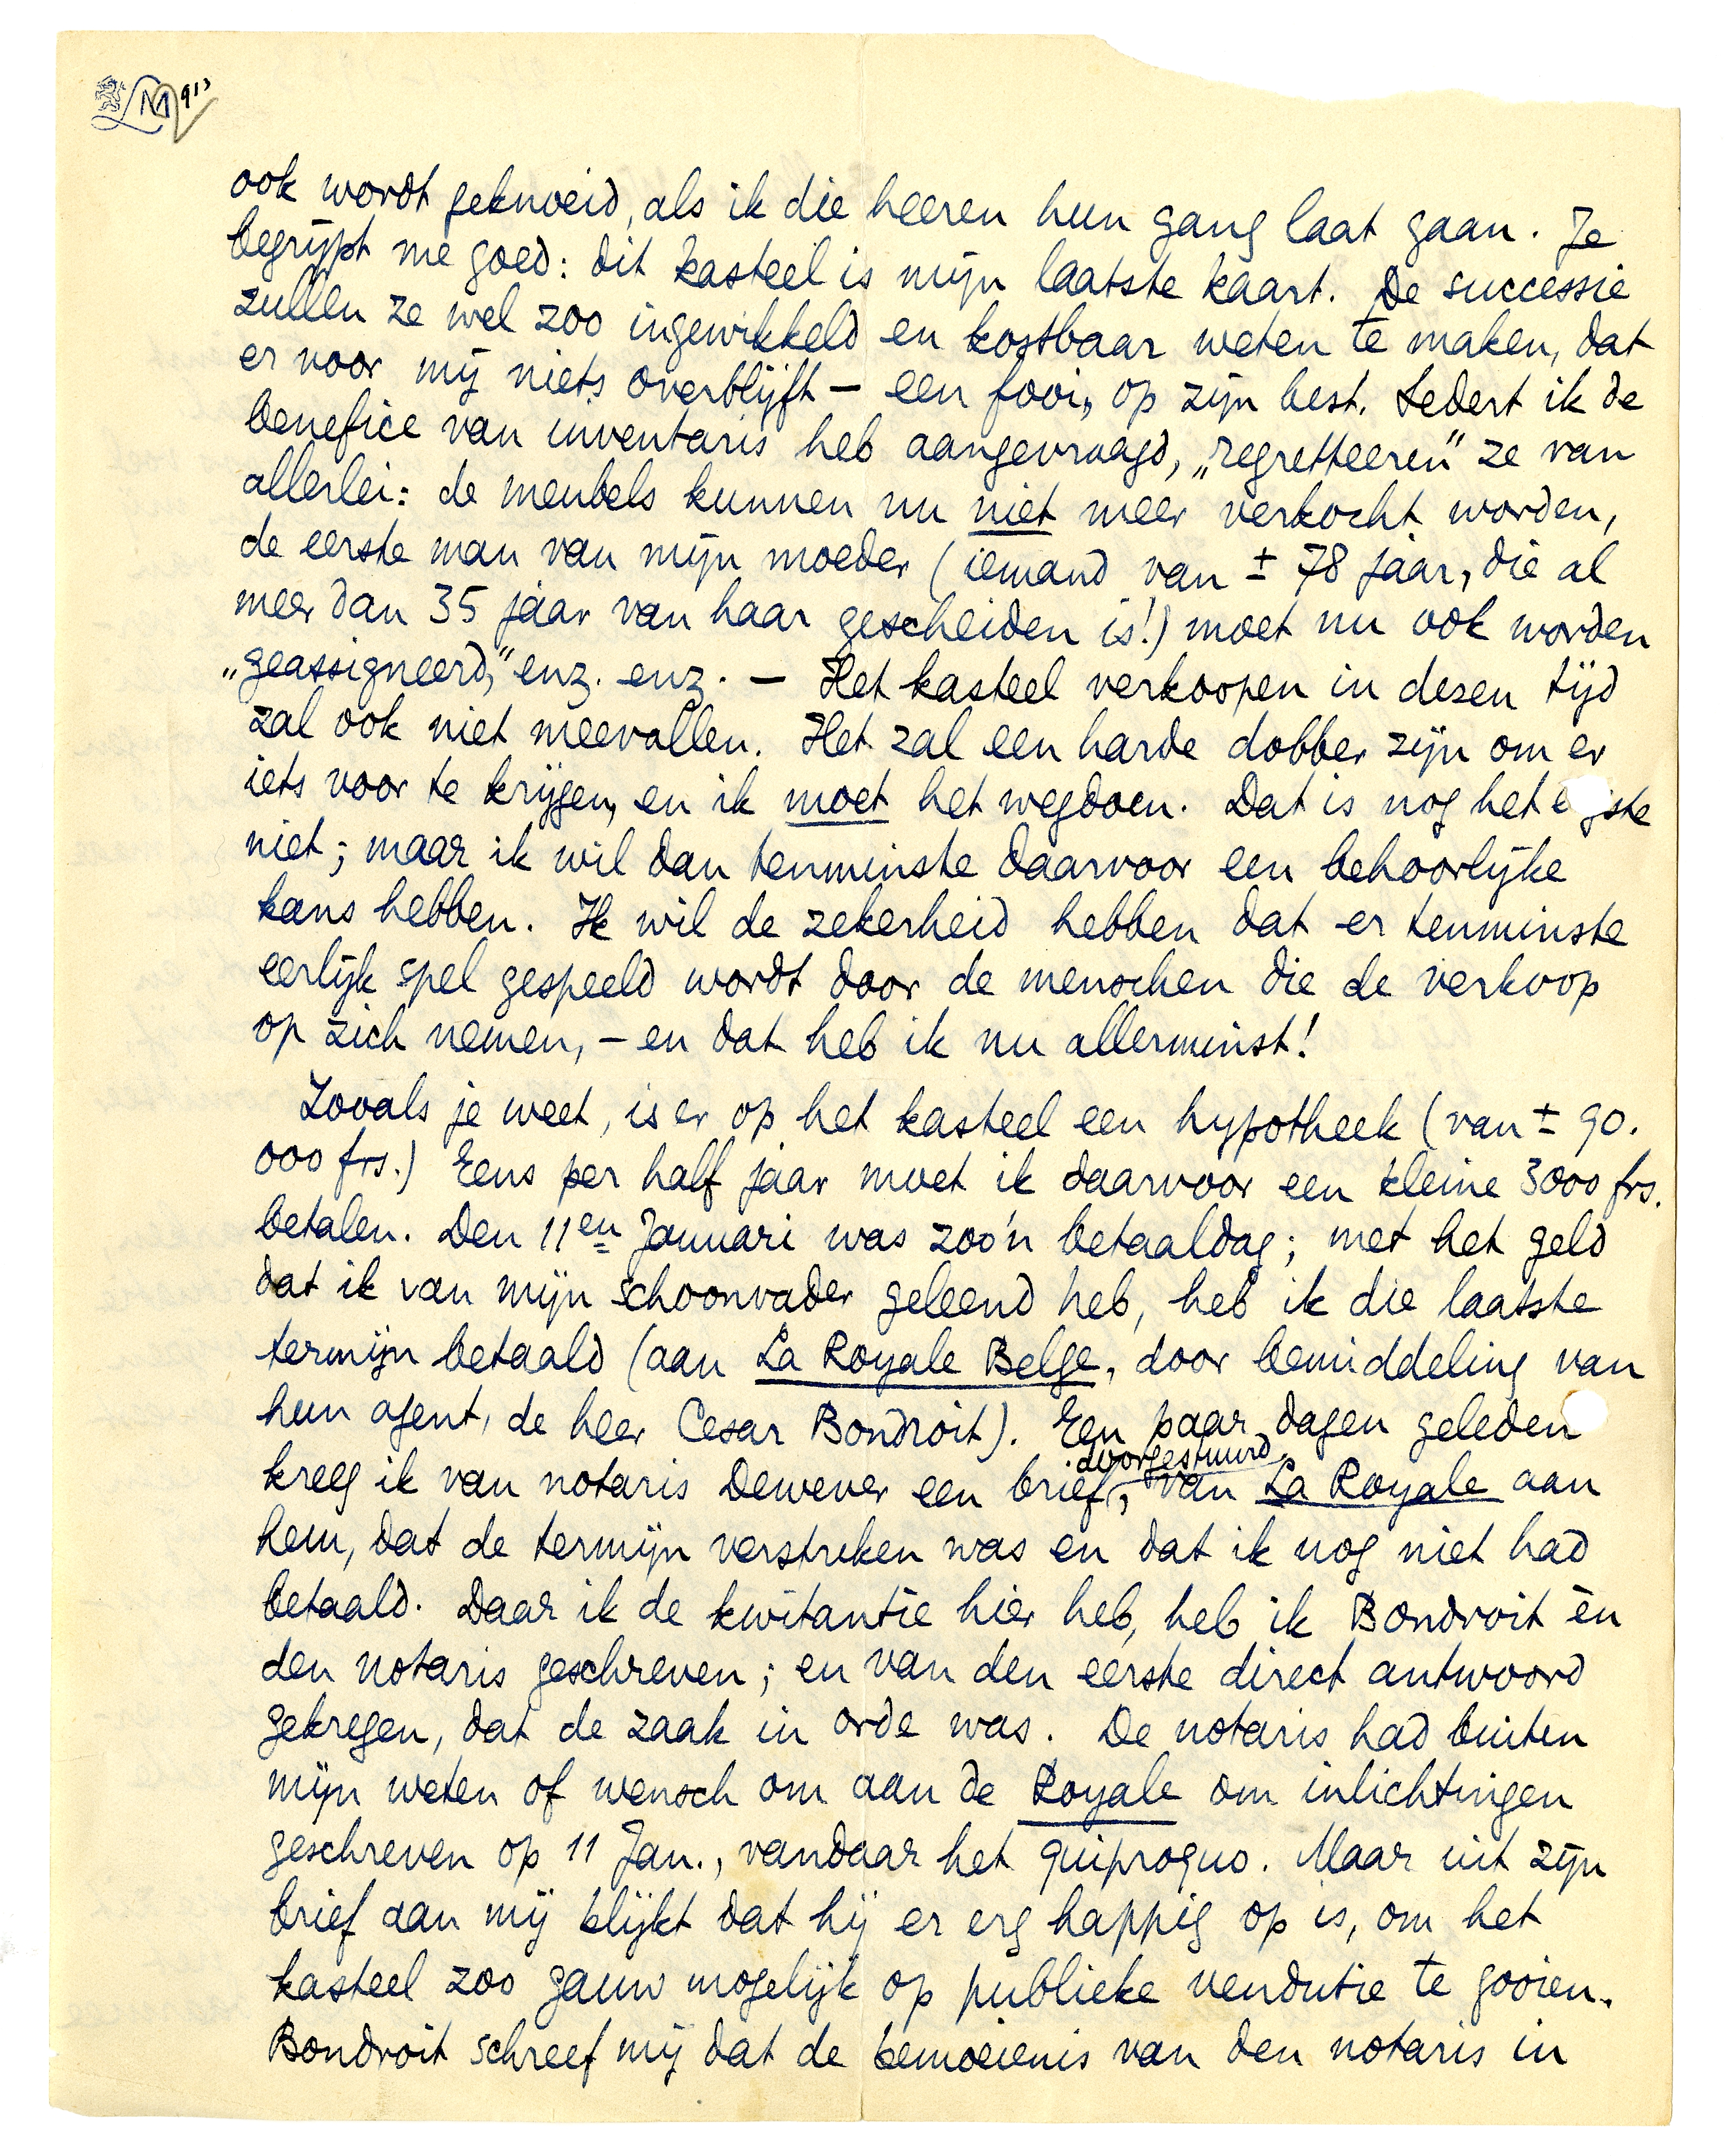 LM 913
ook wordt geknoeid, als ik die heeren hun gang laat gaan. Je
begrijpt me goed: dit kasteel is mijn laatste kaart. De successie
zullen ze wel zoo ingewikkeld en kostbaar weten te maken, dat
er voor mij niets overblijft — een fooi, op zijn best. Sedert ik de
benefice van inventaris heb aangevraagd, „regretteeren" ze van
allerlei: de meubels kunnen nu niet meer verkocht worden,
de eerste man van mijn moeder (iemand van ± 78 jaar, die al
meer dan 35 jaar van haar gescheiden is!) moet nu ook worden
„geassigneerd," enz. enz. — Het kasteel verkoopen in dezen tijd
zal ook niet meevallen. Het zal een harde dobber zijn om er
iets voor te krijgen, en ik moet het wegdoen. Dat is nog het
niet; maar ik wil dan tenminste daarvoor een behoorlijke
kans hebben. Ik wil de zekerheid hebben dat er tenminste
eerlijk spel gespeeld wordt door de menschen die de verkoop
op zich nemen, — en dat heb ik nu allerminst!
Zooals je weet, is er op het kasteel een hypotheek (van ± 90.
000 frs.) Eens per half jaar moet ik daarvoor een kleine 3000 frs.
betalen. Den 11en Januari was zoo'n betaaldag; met het geld
dat ik van mijn schoonvader geleend heb, heb ik die laatste
termijn betaald (aan La Royale Belge, door bemiddeling van
hun agent, de heer Cesar Bondroit). Een paar dagen geleden
kreeg ik van notaris Dewever een brief doorgestuurd, van La Royale aan
hem, dat de termijn verstreken was en dat ik nog niet had
betaald. Daar ik de kwitantie hier heb, heb ik Bondroit èn
den notaris geschreven; en van den eerste direct antwoord
gekregen, dat de zaak in orde was. De notaris had buiten
mijn weten of wensch om aan de Royale om inlichtingen
geschreven op 11 Jan., vandaar het quiproquo. Maar uit zijn
brief aan mij blijkt dat hij er erg happig op is, om het
kasteel zoo gauw mogelijk op publieke vendutie te gooien.
Bondroit schreef mij dat de bemoeienis van den notaris in